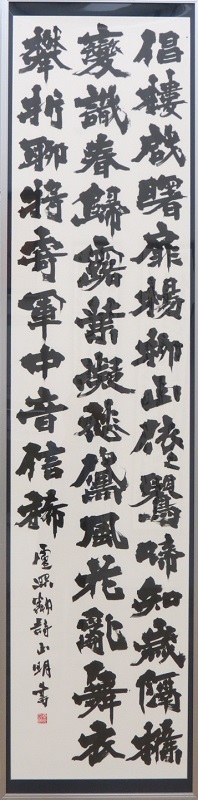 倡樓啓曙扉楊柳正依々鶯啼知歲隔條
變識春歸露葉凝愁黛風花亂舞衣
攀折聊將寄軍中音信稀
盧照鄰詩 明書